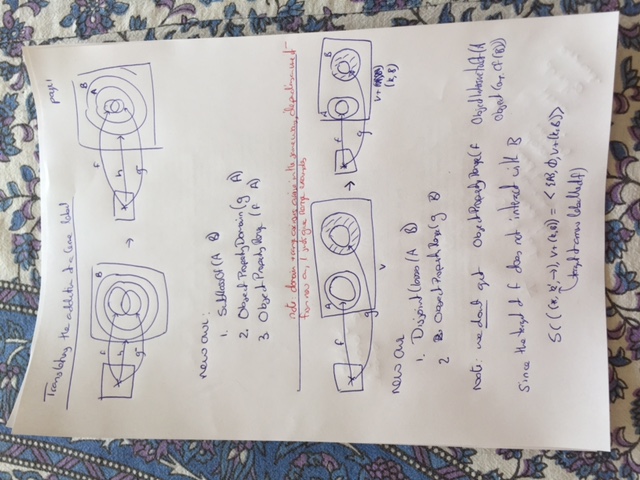 Translating the addition of a curve label
page 1
f B
h
g
→
f B
A
h
g
new owl:
1. SubClassOf(A B)
2. ObjectPropertyDomain(g A)
3 ObjectPropertyRange (f A)
note: domain + range axioms arise in the same way, depending
for now on, I just give range examples
A f B
g
V
→
f A B
g
V+
(k,B)
new owl
1. DisjointClasses(A B)
2 ObjectPropertyRange(g B)
Note: we dont get ObjectPropertyRange(f ObjectIntersectOf(A
ObjectComp.Of(B))
Since the target of f does not interact with B
S(((*, k', →), V+(k,B)) = <{A}, ∅, V+(k,B)>
target of arrow labelled f)